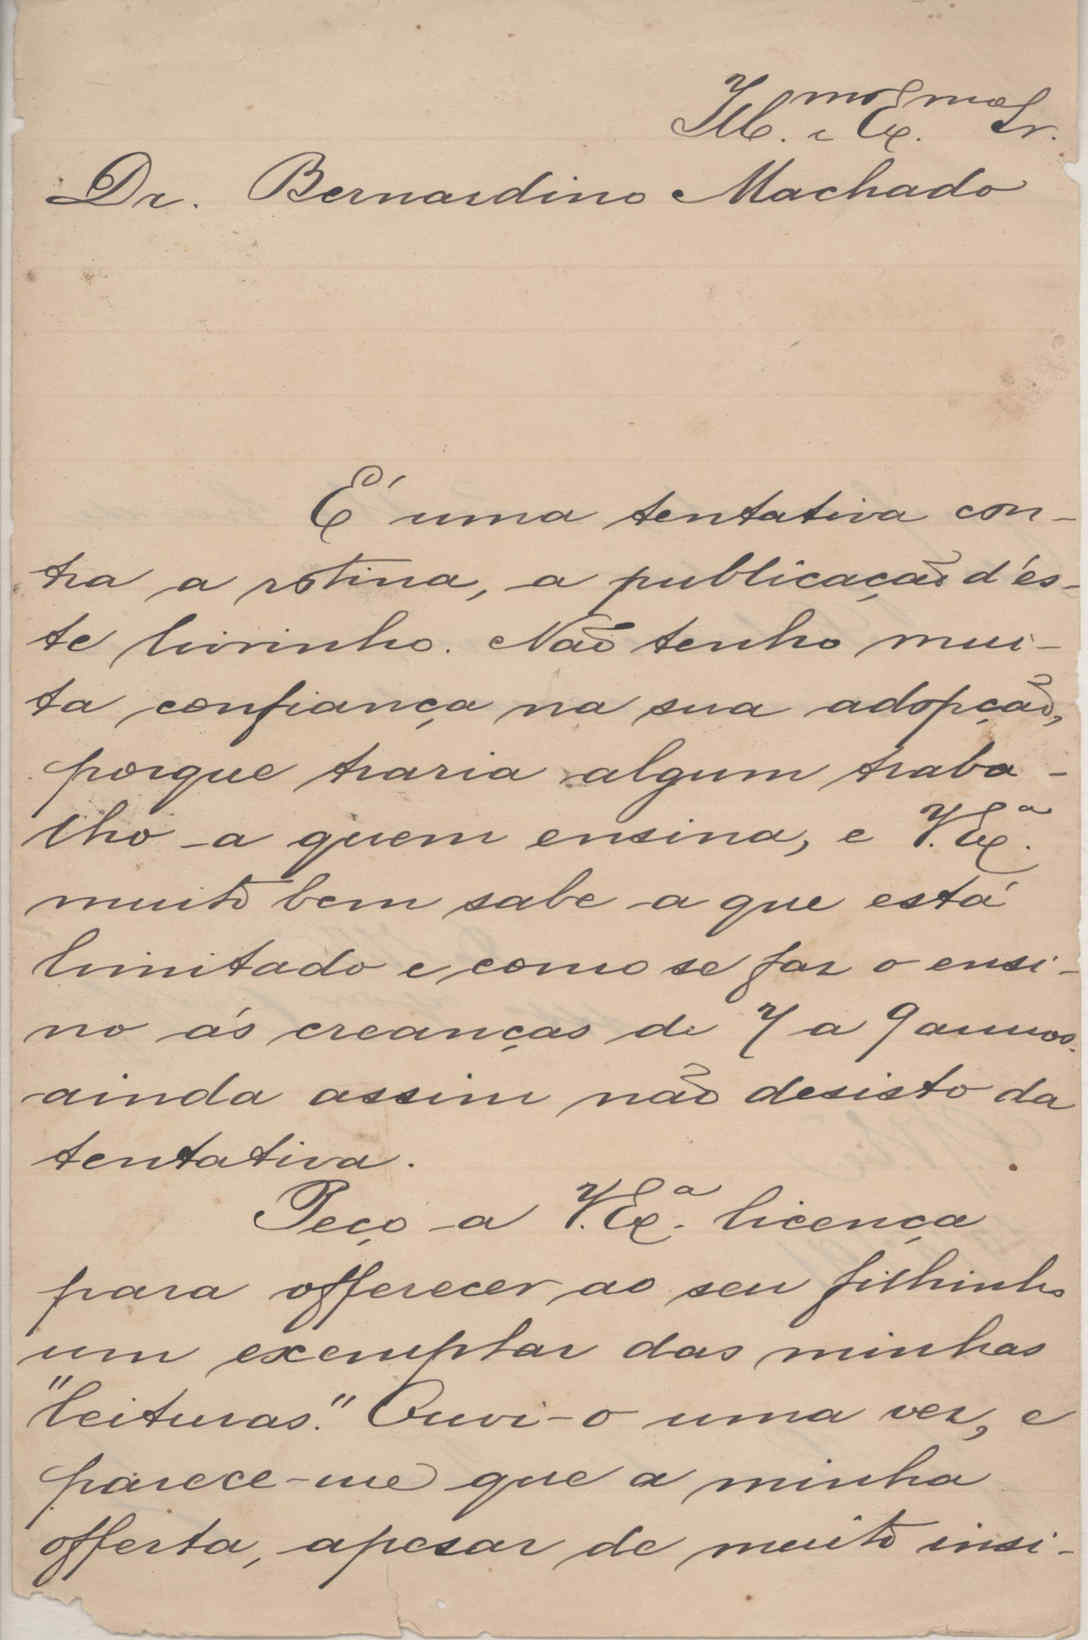 Ill.mo e Ex.mo Sr.
Dr. Bernardino Machado
É uma tentativa con-
tra a rotina, a publicação d'és-
te livrinho. Não tenho mui-
ta confiança na sua adopção,
porque traria algum traba-
lho a quem ensina, e V. Ex.a
muito bem sabe a que está
limitado e como se faz o ensi-
no ás creanças de 7 a 9 annos.
ainda assim não desisto da
tentativa.
Peço a V. Ex.a licença
para offerecer ao seu filhinho
um exemplar das minhas
"leituras." Ouvi-o uma vez, e
parece-me que a minha
offerta, apesar de muito insi-